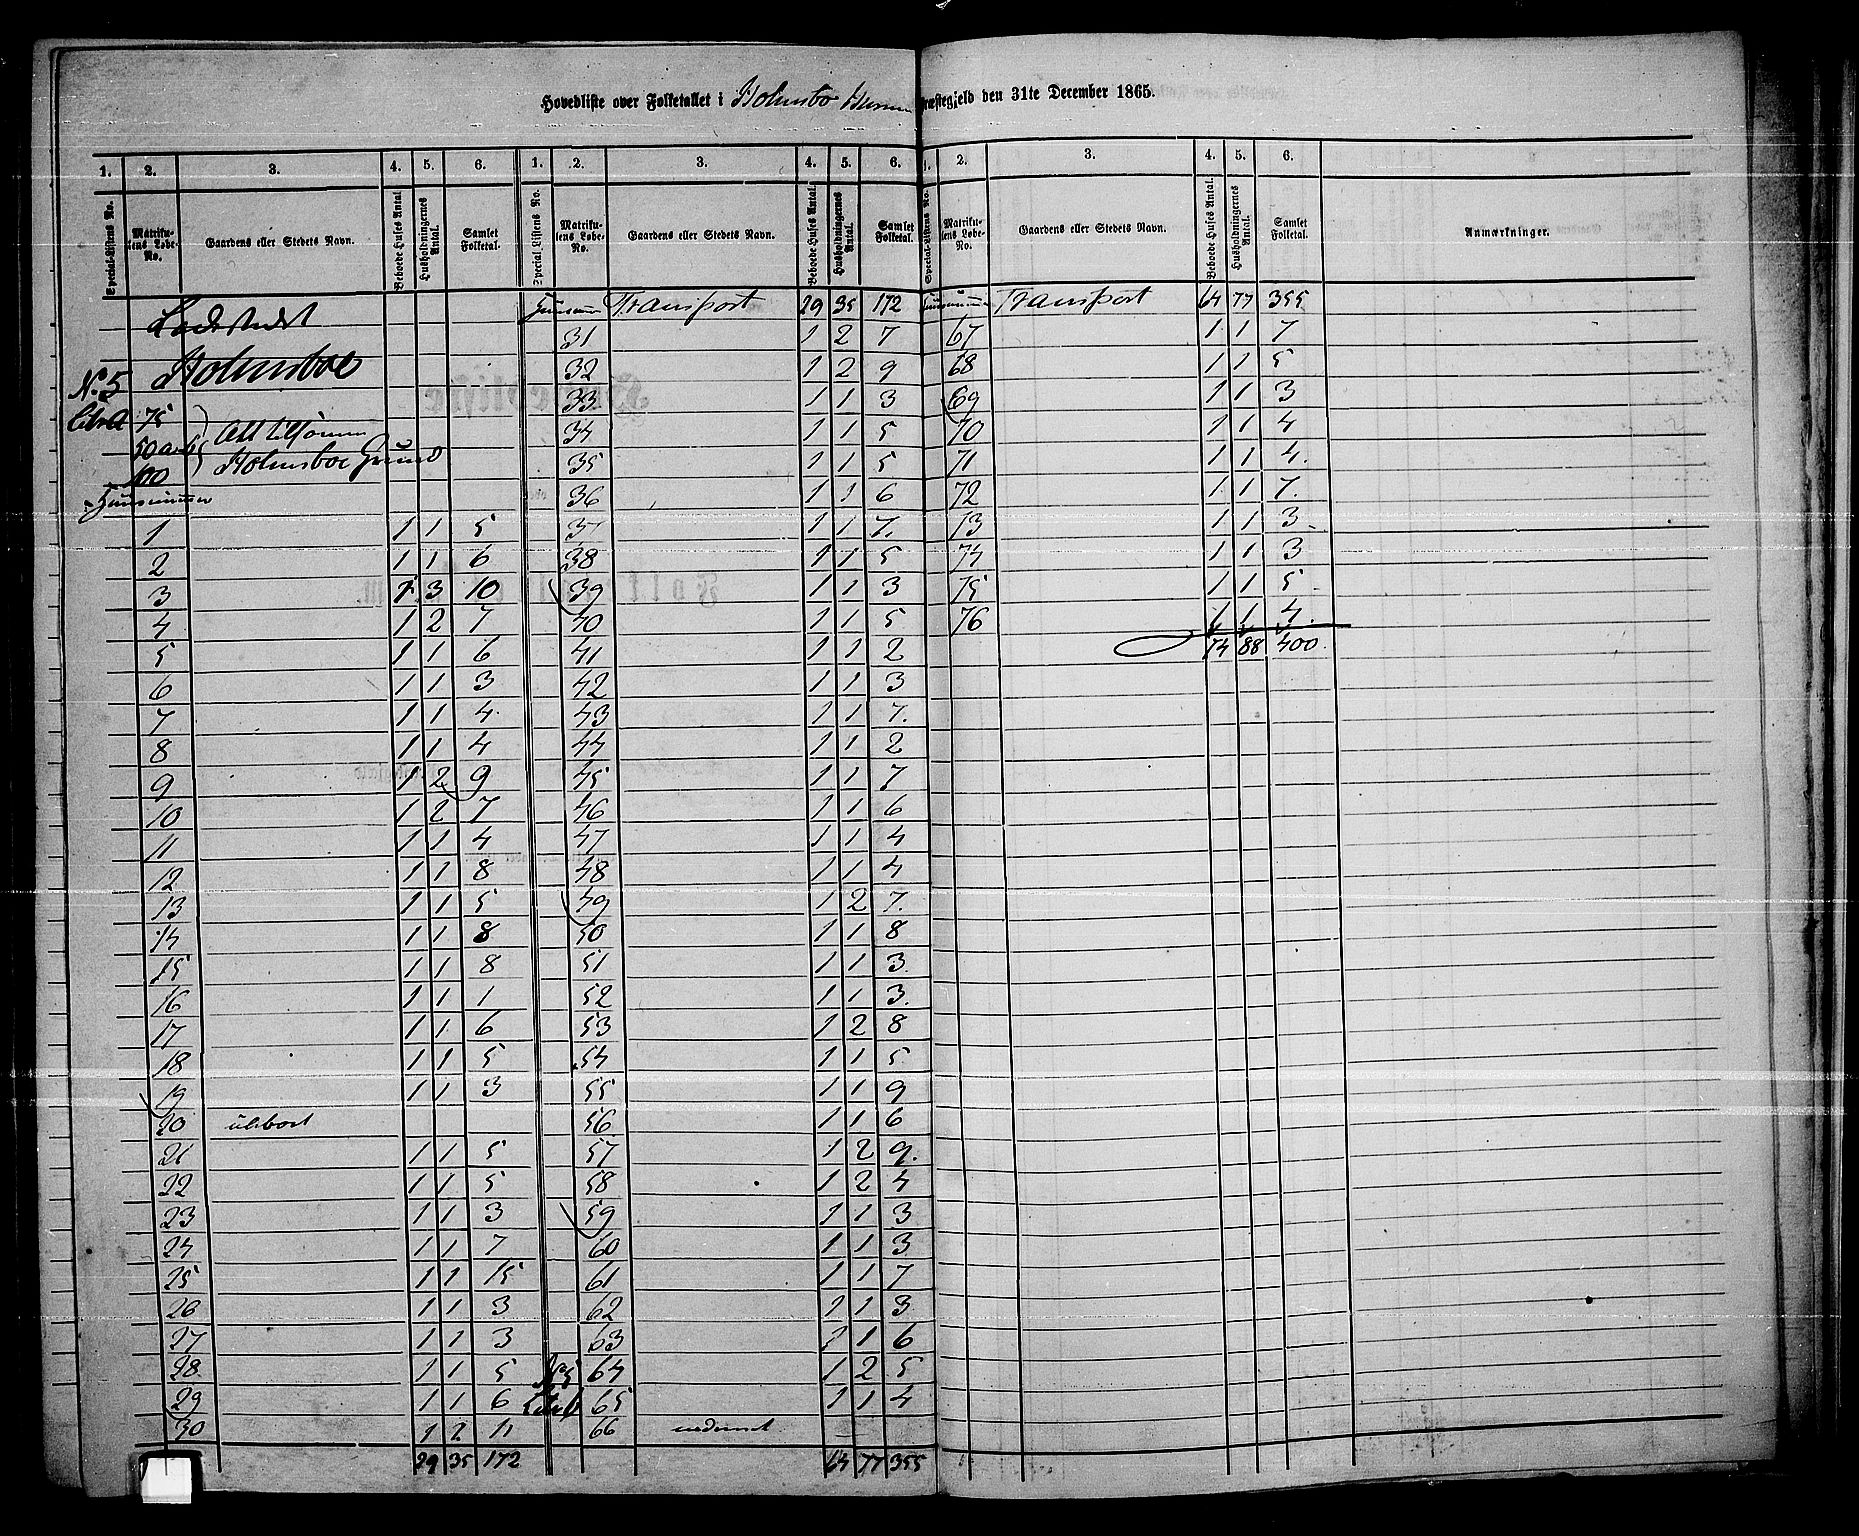 Hovedliste over Folketallet i Holmsbo Hurum Præstegjeld den 31te December 1865.
1. 2. 3. 4. 5. 6.
Special-Listens No. Matrikulens Løbe-No. Gaardens eller Stedets Navn. Beboede Huses Antal. Husholdningernes Antal. Samlet Folketal.
Ladestedet
Holmsboe
No. 5
Litr. A 75
50 a
100
Alt tilhørende
Holmsboe Grund
Huusnummer
1 1 1 5
2 1 1 6
3 1 3 10
4 1 2 7
5 1 1 6
6 1 1 3
7 1 1 4
8 1 1 4
9 1 2 9
10 1 2 7
11 1 1 4
12 1 1 8
13 1 1 5
14 1 1 8
15 1 1 8
16 1 1 1
17 1 1 6
18 1 1 5
19 1 1 3
20
21 1 1 5
22 1 1 5
23 1 1 3
24 1 1 7
25 1 1 15
26 1 1 3
27 1 1 3
28 1 1 5
29 1 1 6
30 1 2 11
29 35 172
1. 2. 3. 4. 5. 6.
Special-Listens No. Matrikulens Løbe-No. Gaardens eller Stedets Navn. Beboede Huses Antal. Husholdningernes Antal. Samlet Folketal.
Huusnummer Transport 29 35 172
31 1 2 7
32 1 2 9
33 1 1 3
34 1 1 5
35 1 1 5
36 1 1 6
37 1 1 7.
38 1 1 5
39 1 1 3
40 1 1 5
41 1 1 2
42 1 1 3
43 1 1 7.
44 1 1 2
45 1 1 7
46 1 1 6
47 1 1 4
48 1 1 4
49 1 2 7.
50 1 1 8
51 1 1 3.
52 1 1 3.
53 1 2 8
54 1 1 5
55 1 1 9
56 1 1 6
57 1 2 9.
58 1 2 4
59 1 1 3
60 1 1 3
61 1 1 7
62 1 1 3
63 1 1 6
No 5 64 1 2 5
Litr. b 65 1 1 4
66 —
64 77 355
1. 2. 3. 4. 5. 6.
Special-Listens No. Matrikulens Løbe-No. Gaardens eller Stedets Navn. Beboede Huses Antal. Husholdningernes Antal. Samlet Folketal. Anmærkninger.
Huusnummer Transport 64 77 355
67 1 1 7
68 1 1 5
69 1 1 3
70 1 1 4
71 1 1 4.
72 1 1 7.
73 1 1 3
74 1 1 3
75 1 1 5
76 1 1 4.
74 88 400.